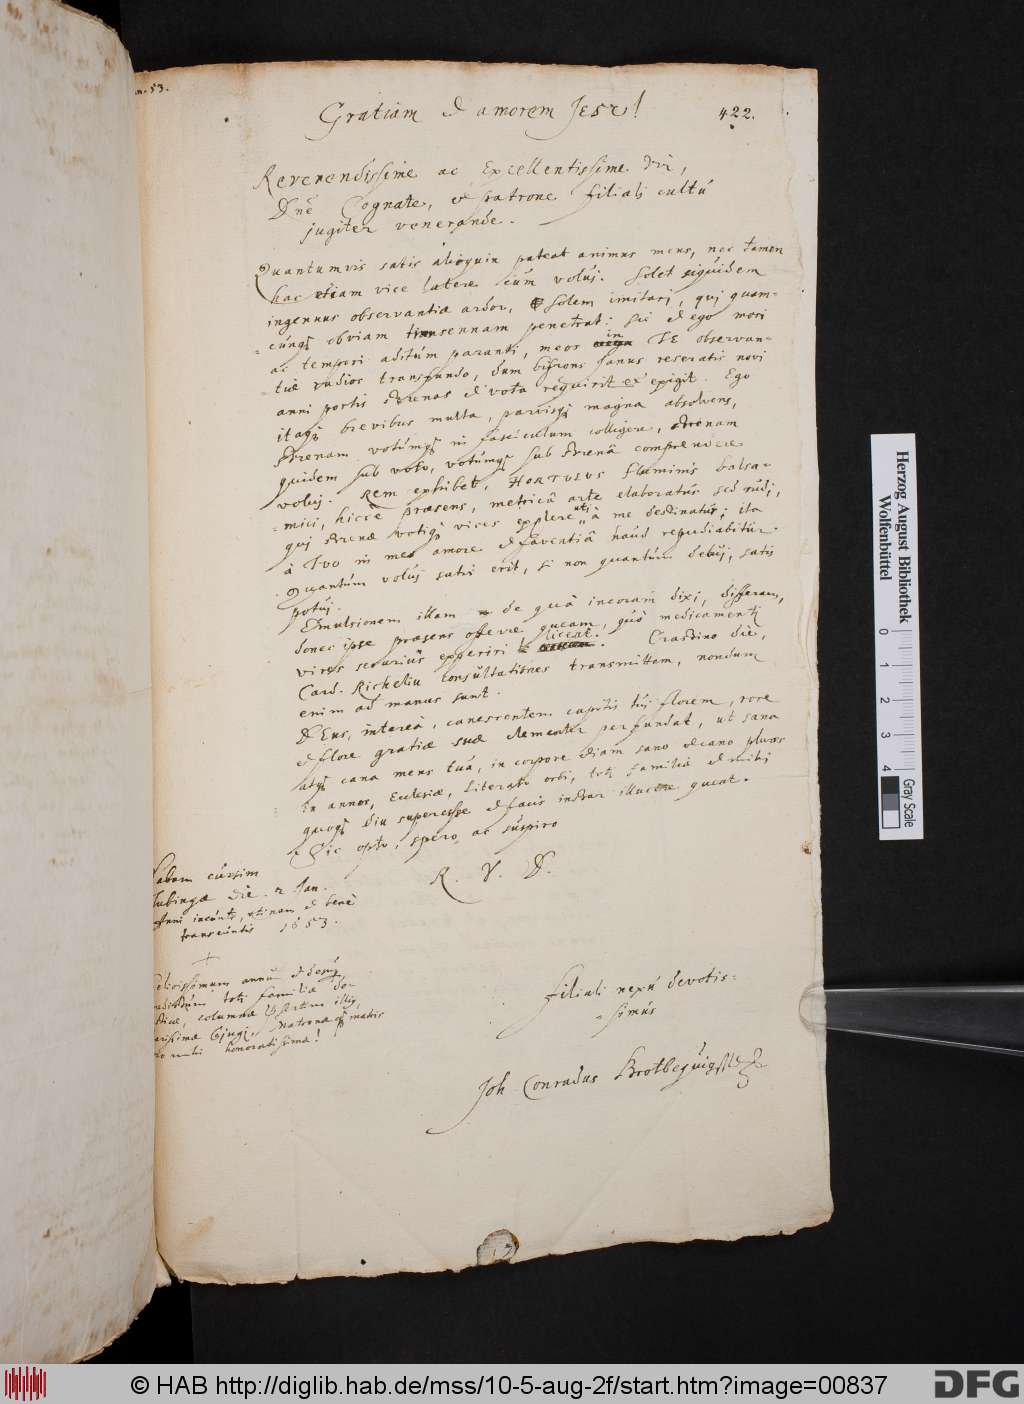 53.
422.
Gratiam et amorem Jesu!
Reverendissime ac Excellentissime Dn̄,
Dn̄e Cognate, et patrone filiali cultu
jugiter venerande.
Quantumvis satis alioquin pateat animus meus, nec tamen
hac etiam vice latere eum voluj. Solet siquidem
ingenuus observantiæ ardor, Solem imitari, quj quam-
=cunq; obviam transennam penetrat: sic et ego mori
ac tempori aditum paranti, meos in TE observan-
=tiæ radios transfundo, dum bifrons Janus reseratis novi
anni portis strenas et vota requirit et exigit. Ego
itaq; brevibus multa, parvisq; magna absolvens,
strenam votumq; in fasciculum colligere, strenam
quidem sub voto, votumq; sub strenâ comprendere
voluj. Rem exhibet, HORTULUS fluminis balsa-
=mici, hicce præsens, metricâ arte elaboratus sed rudi,
quj strenæ votiq; vices explere à me destinatus; ita
à Tuo in me amore et faventiâ haud repudiabitur.
Quantum voluj satis erit, si non quantum debuj, satis
potuj.
Emulsionem illam de quâ incoram dixi, differam,
donec ipse præsens offerre queam, quò medicamentj
vires securius experiri liceat. Crastino die,
Card. Richelii Consultationes transmittam, nondum
enim ad manus sunt.
DEus, intereà, canescentem capitis tui florem, rore
et flore gratiæ suæ clementer perfundat, ut sana
atq; cana mens tua, in corpore etiam sano et cano plures
in annos, Ecclesiæ, Literato orbi, toti familiæ et mihi
quoq; diu superesse et facis instar illucere queat.
Sic opto, spero, ac suspiro
R. V. D.
Dabam cursim
Tubingæ die 2 Jan.
Anni ineuntis, utinam et benè
transeuntis 1653.
+
Felicissimum annum et
toti familiæ
columnæ
Matronæq; matris
honoratissimæ!
filiali nexu devotis=
=simus
Joh. Conradus Brotbequig